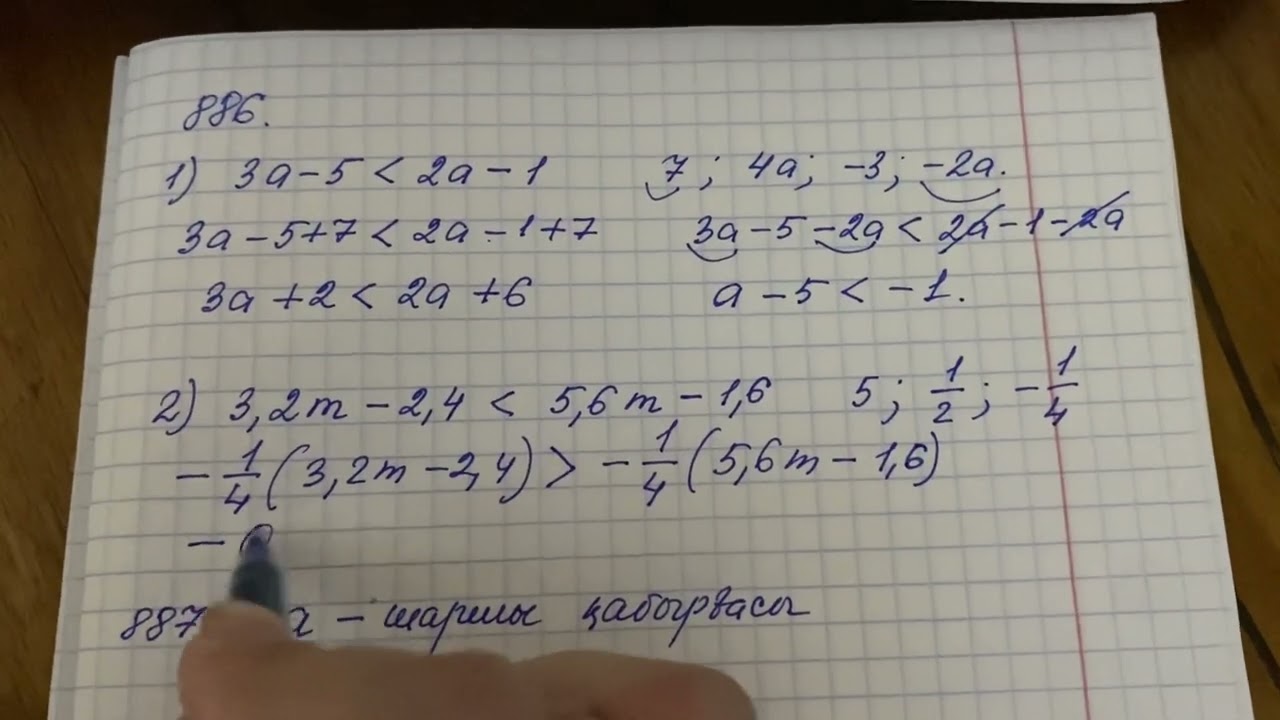 886.
1) 3a-5 < 2a-1 7; 4a; -3; -2a.
3a-5+7 < 2a-1+7 3a-5-2a < 2a-1-2a
3a+2 < 2a+6 a-5 < -1.
2) 3,2m-2,4 < 5,6m-1,6 5; 1/2; -1/4
-1/4(3,2m-2,4) > -1/4(5,6m-1,6)
-
887 a - шаршы қабырғасы